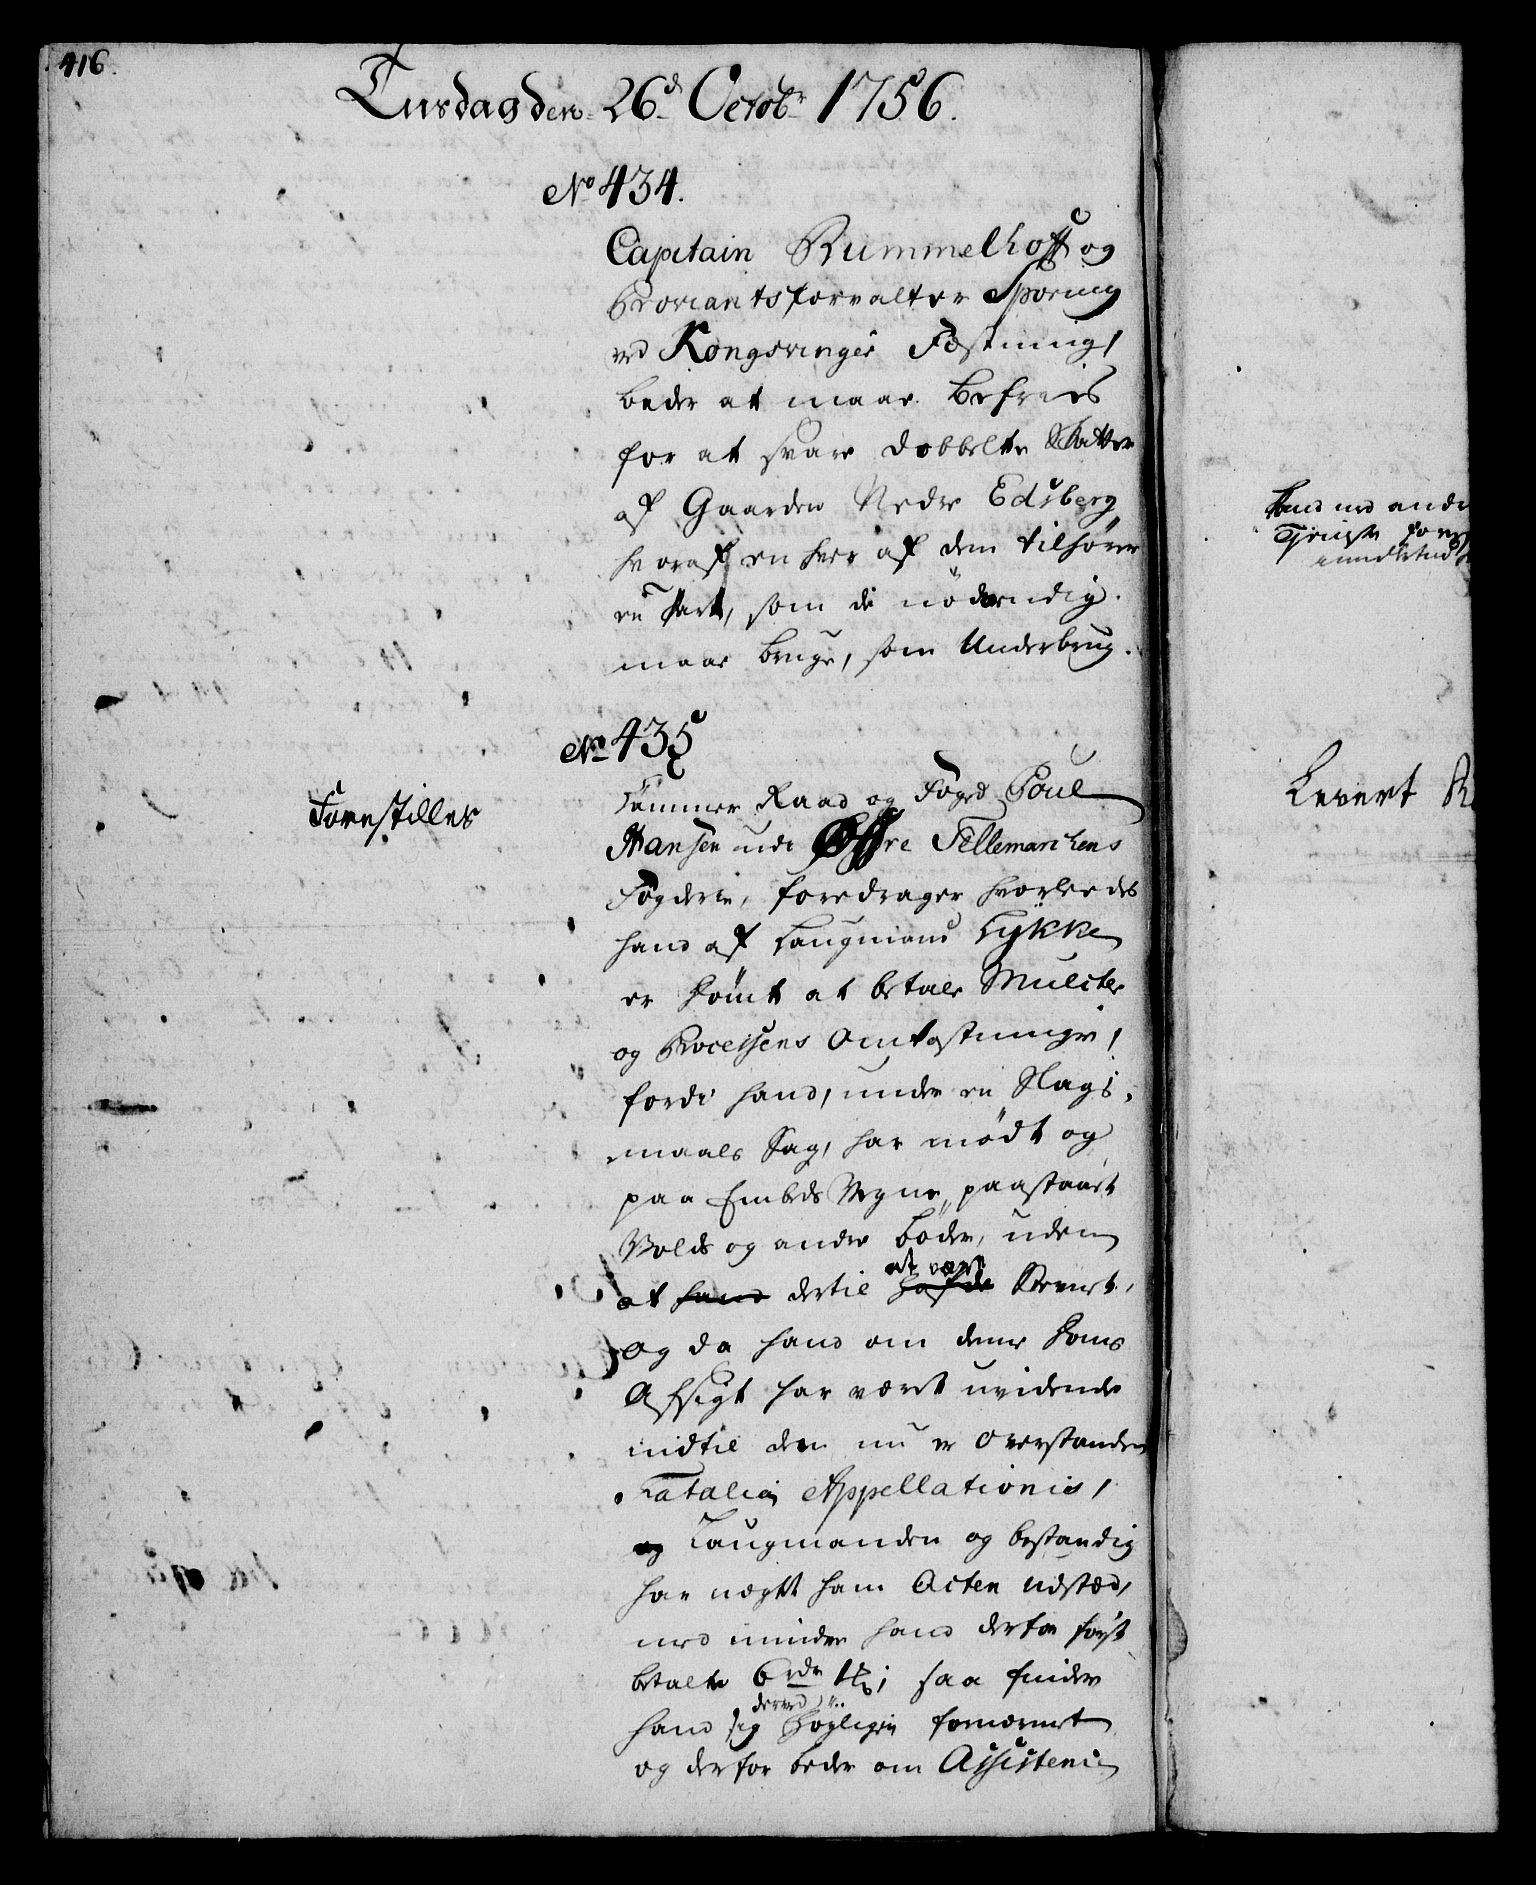 416.
Tirsdag den 26d Octobr 1756.
No 434.
Capitain Rummelhoff og
Proviantsforvalter Sporing
ved Kongsvinger Fæstning,
beder at maae befries
for at svare dobbelte Skatter
af Gaarden Nedre Edsberg
hvoraf en hver af dem tilhører
en Part, som de nødvendig
maae bruge, som Underbrug.
No 435
Forestilles
Kammer Raad og Foged Poul
Hansen udi Øfre Tellemarchens
Fogderie, foredrager hvorleedes
hand af Laugmand Lykke
er dømt at betale Mulcter
og Processens Omkostninger,
fordi hand, under en Slags-
maals Sag, har mødt og
paa Embeds Vegne, paastaaet
Volds og andre bøder, uden
at hand dertil hafde at være Stevnt,
og da hand om denne Doms
Afsigt har været uvidende
indtil den nu er Overstanden
Fatalia Appellationis,
og Laugmanden og bestandig
har nægtet ham Acten udstæd,
med mindre hand derfor først
betalte 6 rdr; saa finder
hand sig derved høyligen fornærmet
og derfor beder om Assistence
hand med andr
Tjeniste
Levert